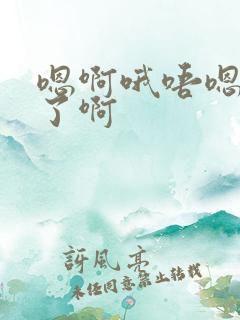 嗯啊哦唔嗯
了啊
訝風亮
未经同意禁止转载